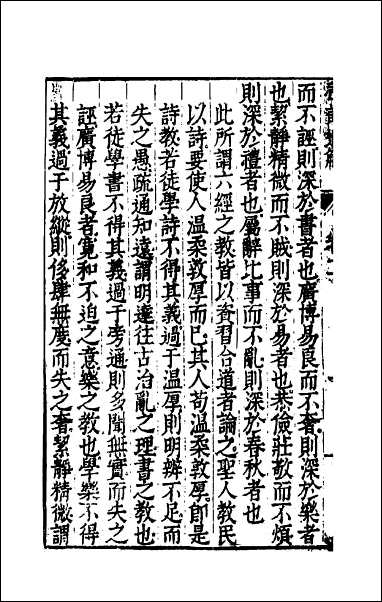 而不誣則深於書者也廣博易良而不奢則深於樂者
也絜靜精微而不賊則深於易者也恭儉莊敬而不煩
則深於禮者也屬辭比事而不亂則深於春秋者也
此所謂六經之教皆以資習合道者論之聖人教民
以詩要使人温柔敦厚而已其人苟温柔敦厚即是
詩教若徒學詩不得其義過于温厚則明辨不足而
失之愚疏通知遠謂明達往古治亂之理書之教也
若徒學書不得其義過于旁通則多聞無實而失之
誣廣博易良者寛和不迫之意樂之教也學樂不得
其義過于放縱則侈肆無度而失之奢絜靜精微謂